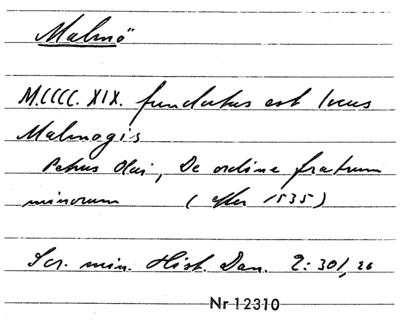 Malmö
M.CCCC.XIX. fundatus est locus
Malmogis
Petrus Olai, De ordine fratrum
minorum (efter 1535)
Scr. min. Hist. Dan. 2: 301, 26
Nr 12310